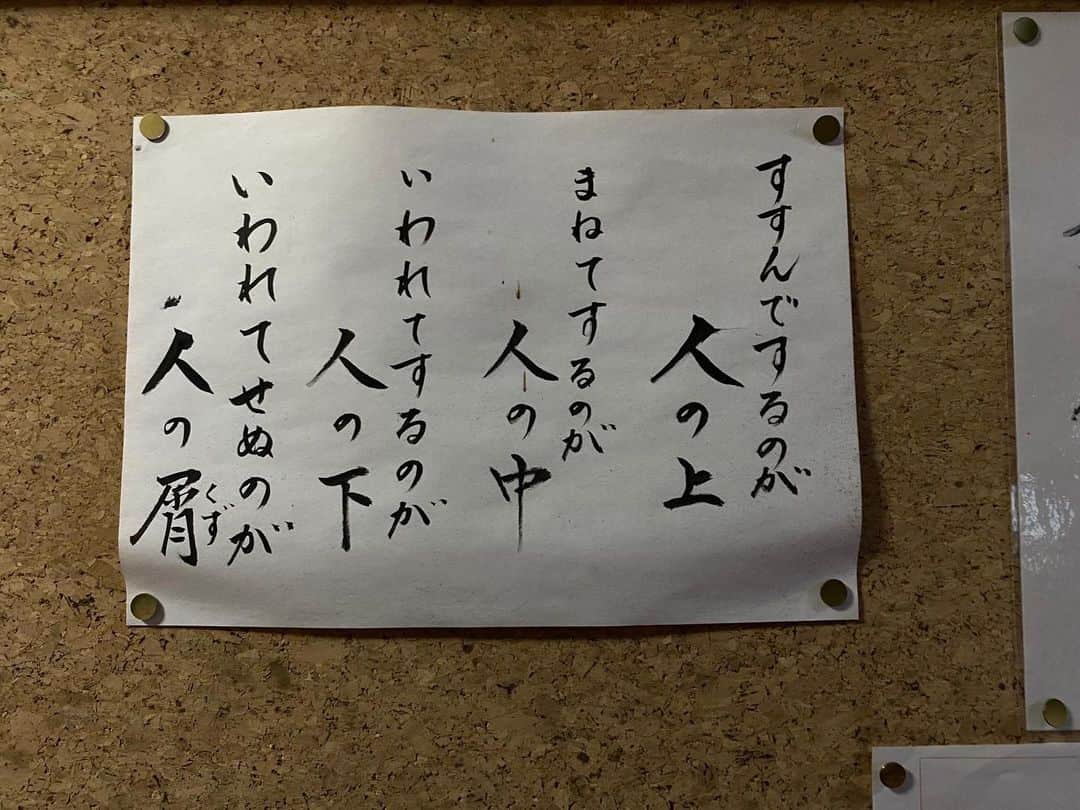 すすんでするのが
人の上
まねてするのが
人の中
いわれてするのが
人の下
いわれてせぬのが
人の屑
くず